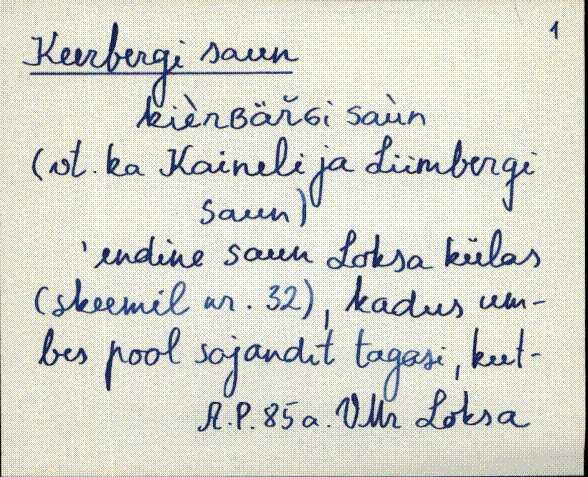 1
Keerbergi saun
kièrʙäřɢi saùn
(vt. ka Kaineli ja Liimbergi
saun)
'endine saun Loksa külas
(skeemil nr. 32), kadus um-
bes pool sajandit tagasi, kut-
A.P. 85 a. VMr Loksa